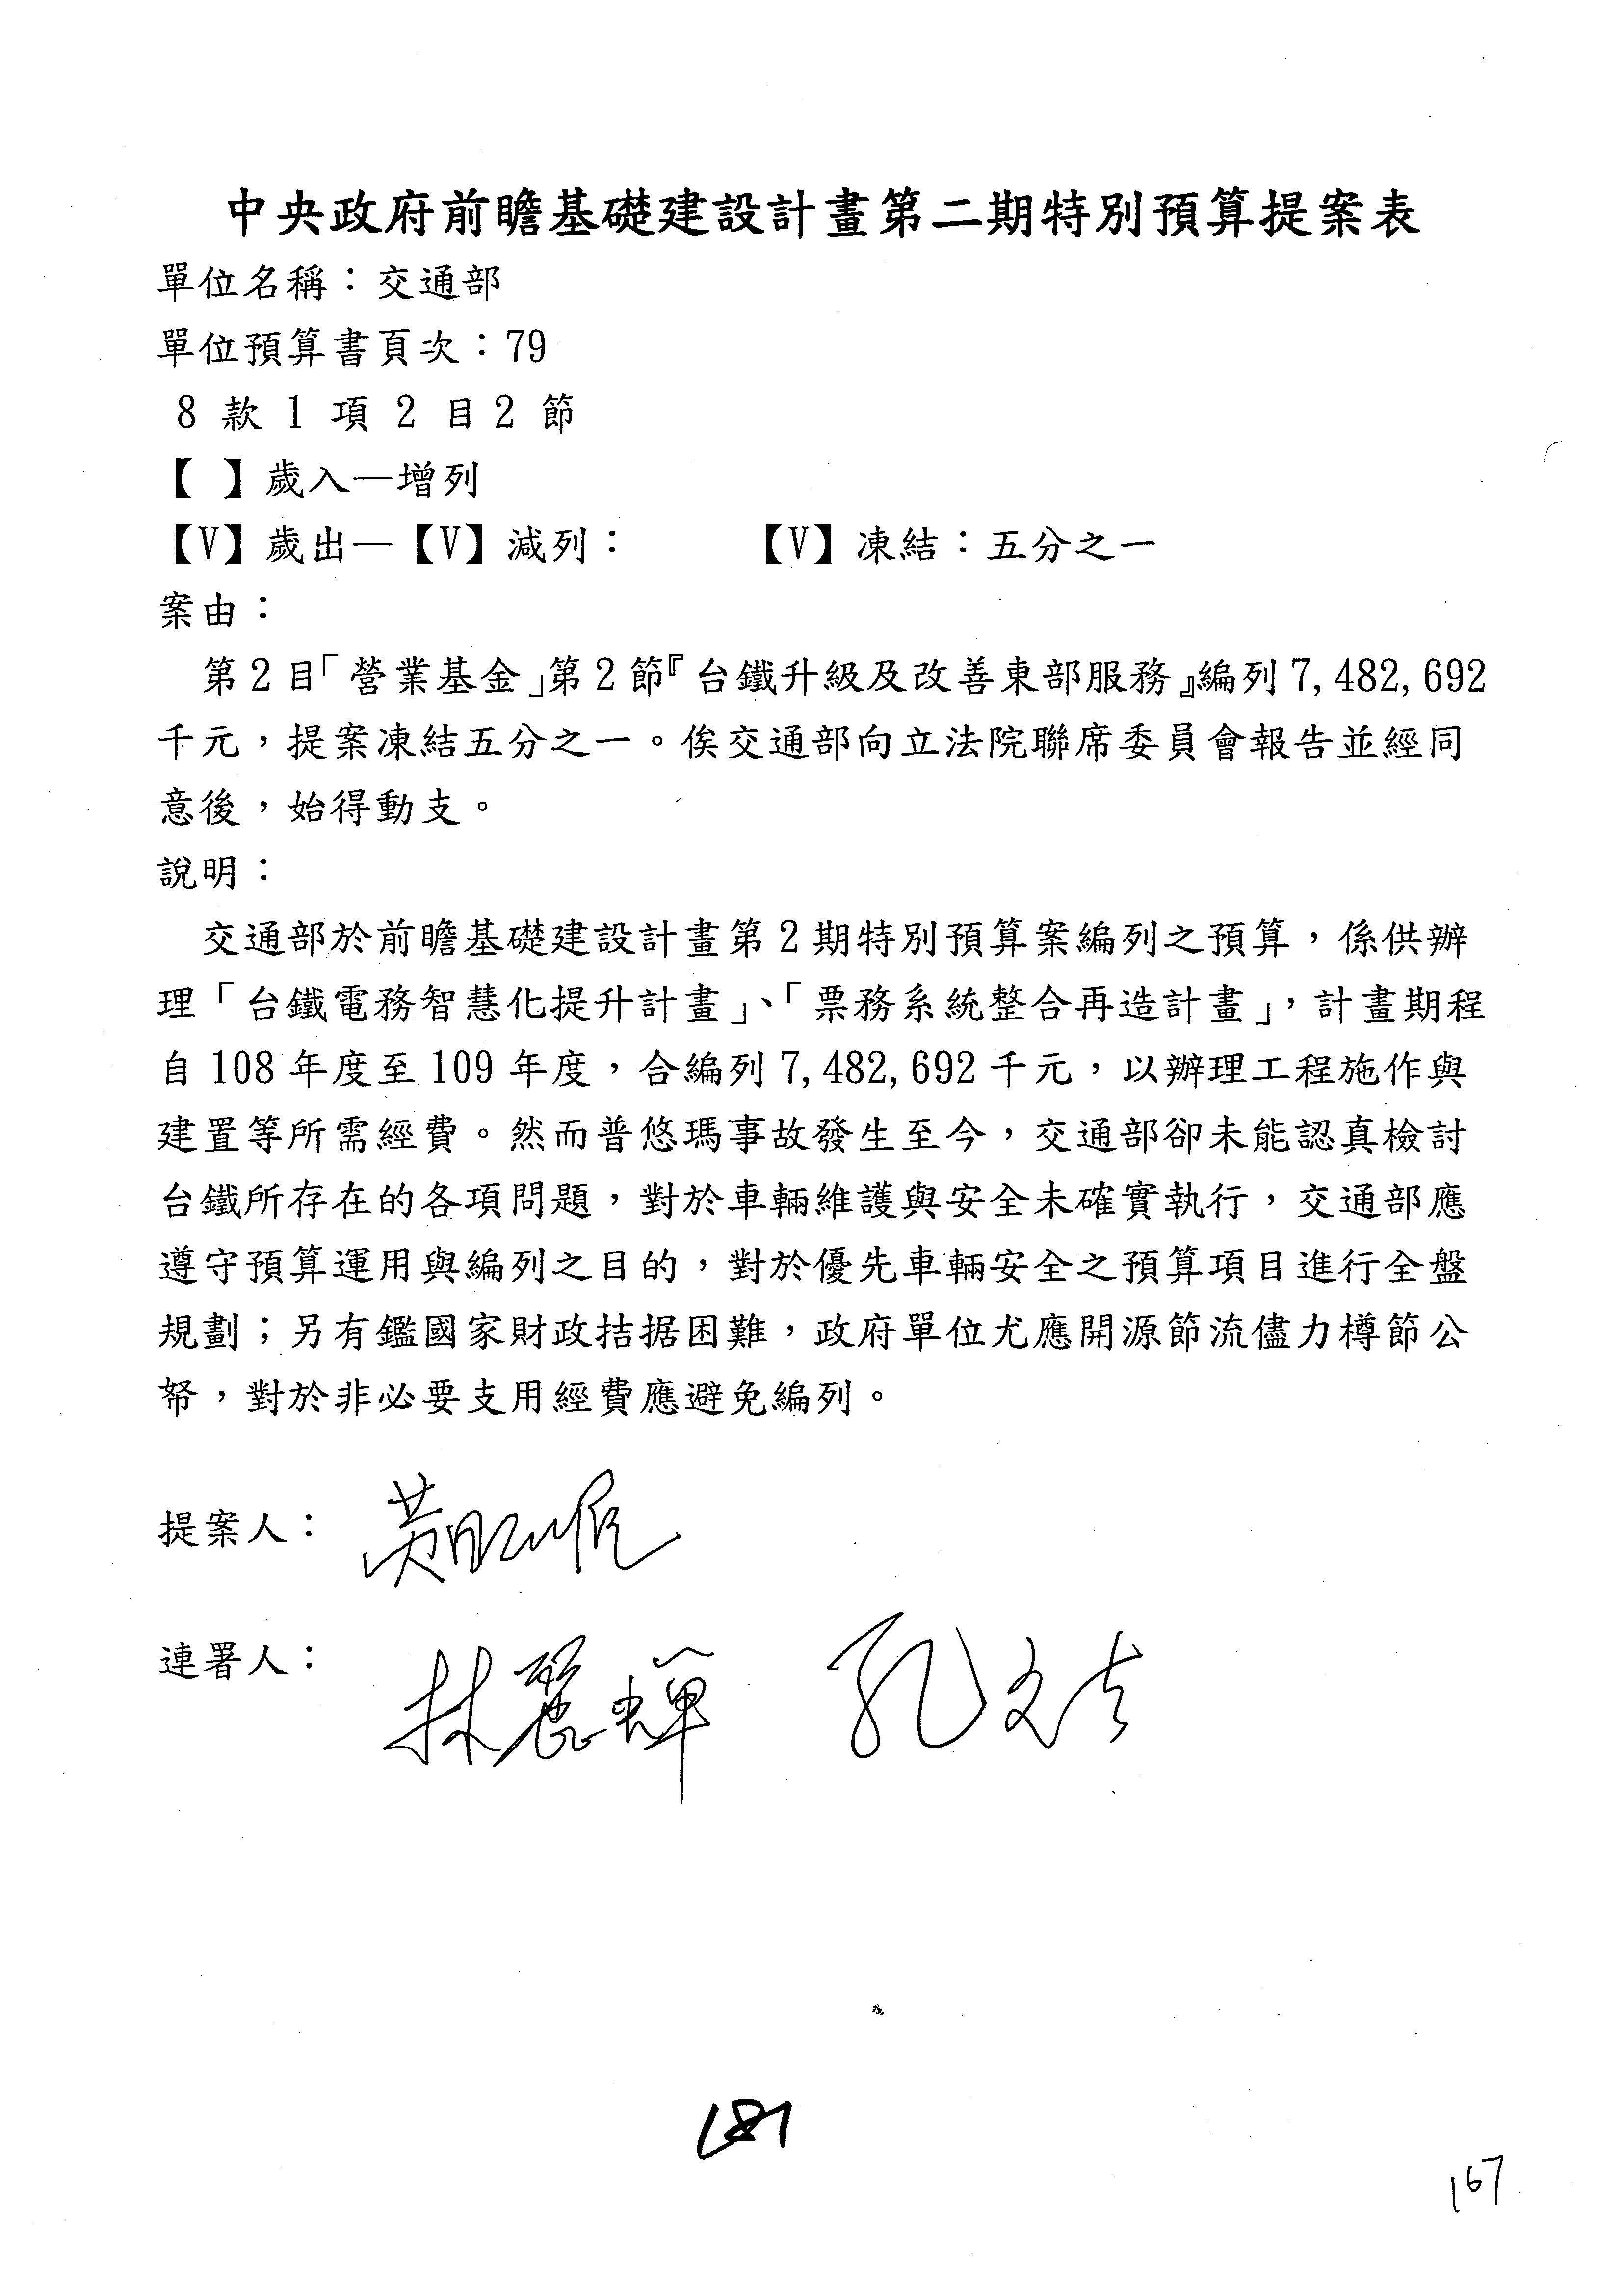 中央政府前瞻基礎建設計畫第二期特別預算提案表
單位名稱：交通部
單位預算書頁次：79
8 款 1 項 2 目 2 節
【 】歲入—增列
【V】歲出—【V】減列： 【V】凍結：五分之一
案由：
第2目「營業基金」第2節『台鐵升級及改善東部服務』編列7,482,692
千元，提案凍結五分之一。俟交通部向立法院聯席委員會報告並經同
意後，始得動支。
說明：
交通部於前瞻基礎建設計畫第2期特別預算案編列之預算，係供辦
理「台鐵電務智慧化提升計畫」、「票務系統整合再造計畫」，計畫期程
自108年度至109年度，合編列7,482,692千元，以辦理工程施作與
建置等所需經費。然而普悠瑪事故發生至今，交通部卻未能認真檢討
台鐵所存在的各項問題，對於車輛維護與安全未確實執行，交通部應
遵守預算運用與編列之目的，對於優先車輛安全之預算項目進行全盤
規劃；另有鑑國家財政拮据困難，政府單位尤應開源節流儘力樽節公
帑，對於非必要支用經費應避免編列。
提案人：
連署人： 林麗蟬 孔文吉
187
167